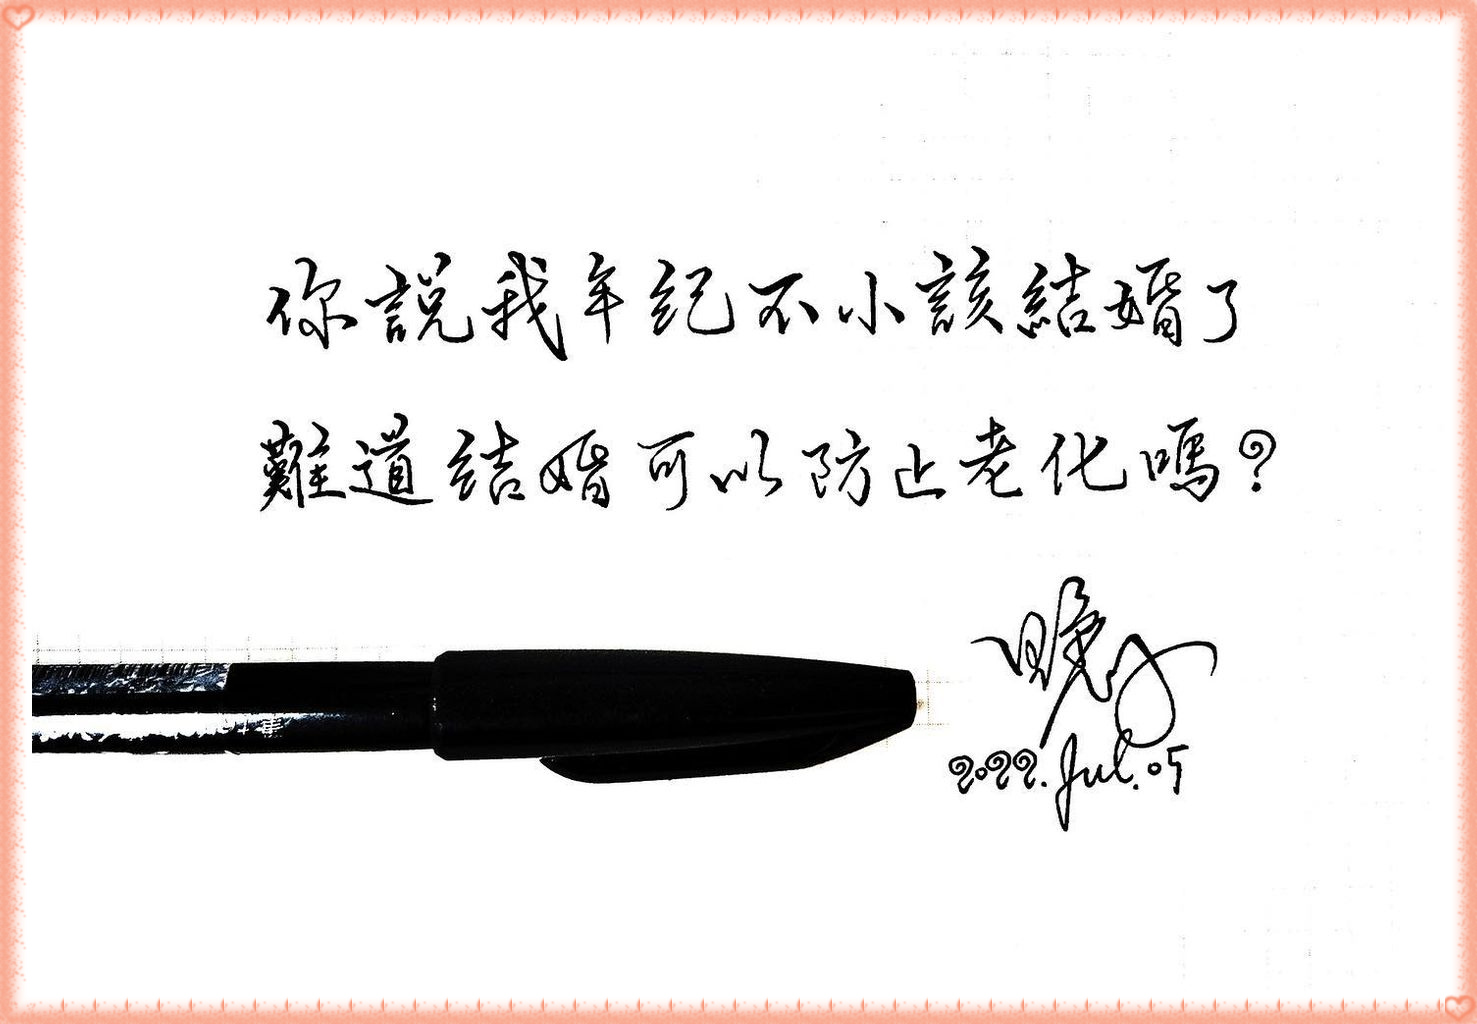 你說我年紀不小該結婚了
難道結婚可以防止老化嗎？
2022.Jul.05